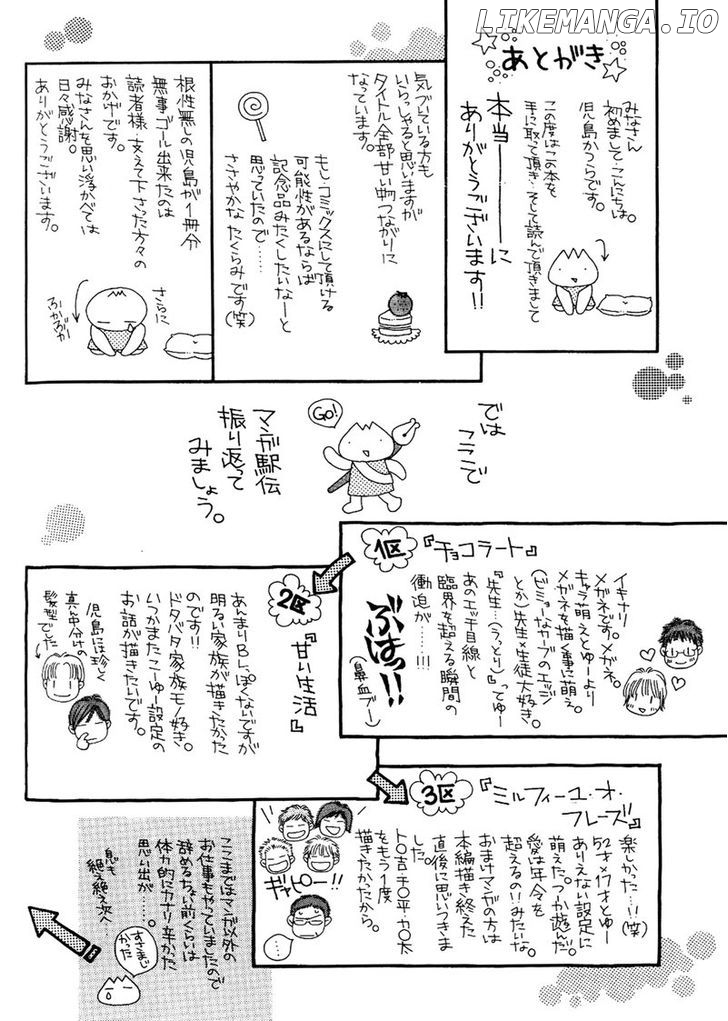 LIKEMANGA.IO
あとがき
みなさん
初めまして・こんにちは。
児島かつらです。
この度はこの本を
手に取って頂き・そして読んで頂きまして
本当――に
ありがとうございます!!
気づいている方も
いらっしゃると思いますが
タイトル全部甘い物つながりに
なっています。
もし・コミックスにして頂ける
可能性があるならば
記念品みたくしたいなーと
思っていたので……
ささやかなたくらみです(笑)
根性無しの児島が1冊分
無事ゴール出来たのは
読者様・支えて下さった方々の
おかげです。
みなさんを思い浮かべては
日々感謝。
ありがとうございます。
さらに
ふかぶか
では
ここで
Go!
マンガ駅伝
振り返って
みましょう。
1区
『チョコラート』
イキナリ
メガネです。メガネ。
キャラ萌えとゆーより
メガネを描く事に萌え。
(ビミョーなカーブのエッジ
とか)先生×生徒大好き。
『先生…うっとり』ってゆー
あのエッチ目線と
臨界を超える瞬間の
衝迫が……!!!
ぶはっ!!
(鼻血ブー)
2区
『甘い生活』
あんまりBLぽくないですが
明るい家族が描きたかった
のです!!
ドタバタ家族モノ好き。
いつかまたこーゆー設定の
お話が描きたいです。
児島には珍しく
真中分けの
髪型でした
3区
『ミルフィーユ・オ・
フレーズ』
楽しかった…!!(笑)
52才×17才とゆー
ありえない設定に
萌えた。つか遊んだ。
愛は年令を
超えるの!!みたいな。
おまけマンガの方は
本編描き終えた
直後に思いつきま
した。
ト〇吉・チ〇平・カ〇太
をもう1度
描きたかったから。
ギャピー!!
…
ここまではマンガ以外の
お仕事もやっていましたので
辞めるちょい前くらいは
体力的にカナリ辛かった
思い出が……。
息も
絶え絶え次へ
すさまじ
かった